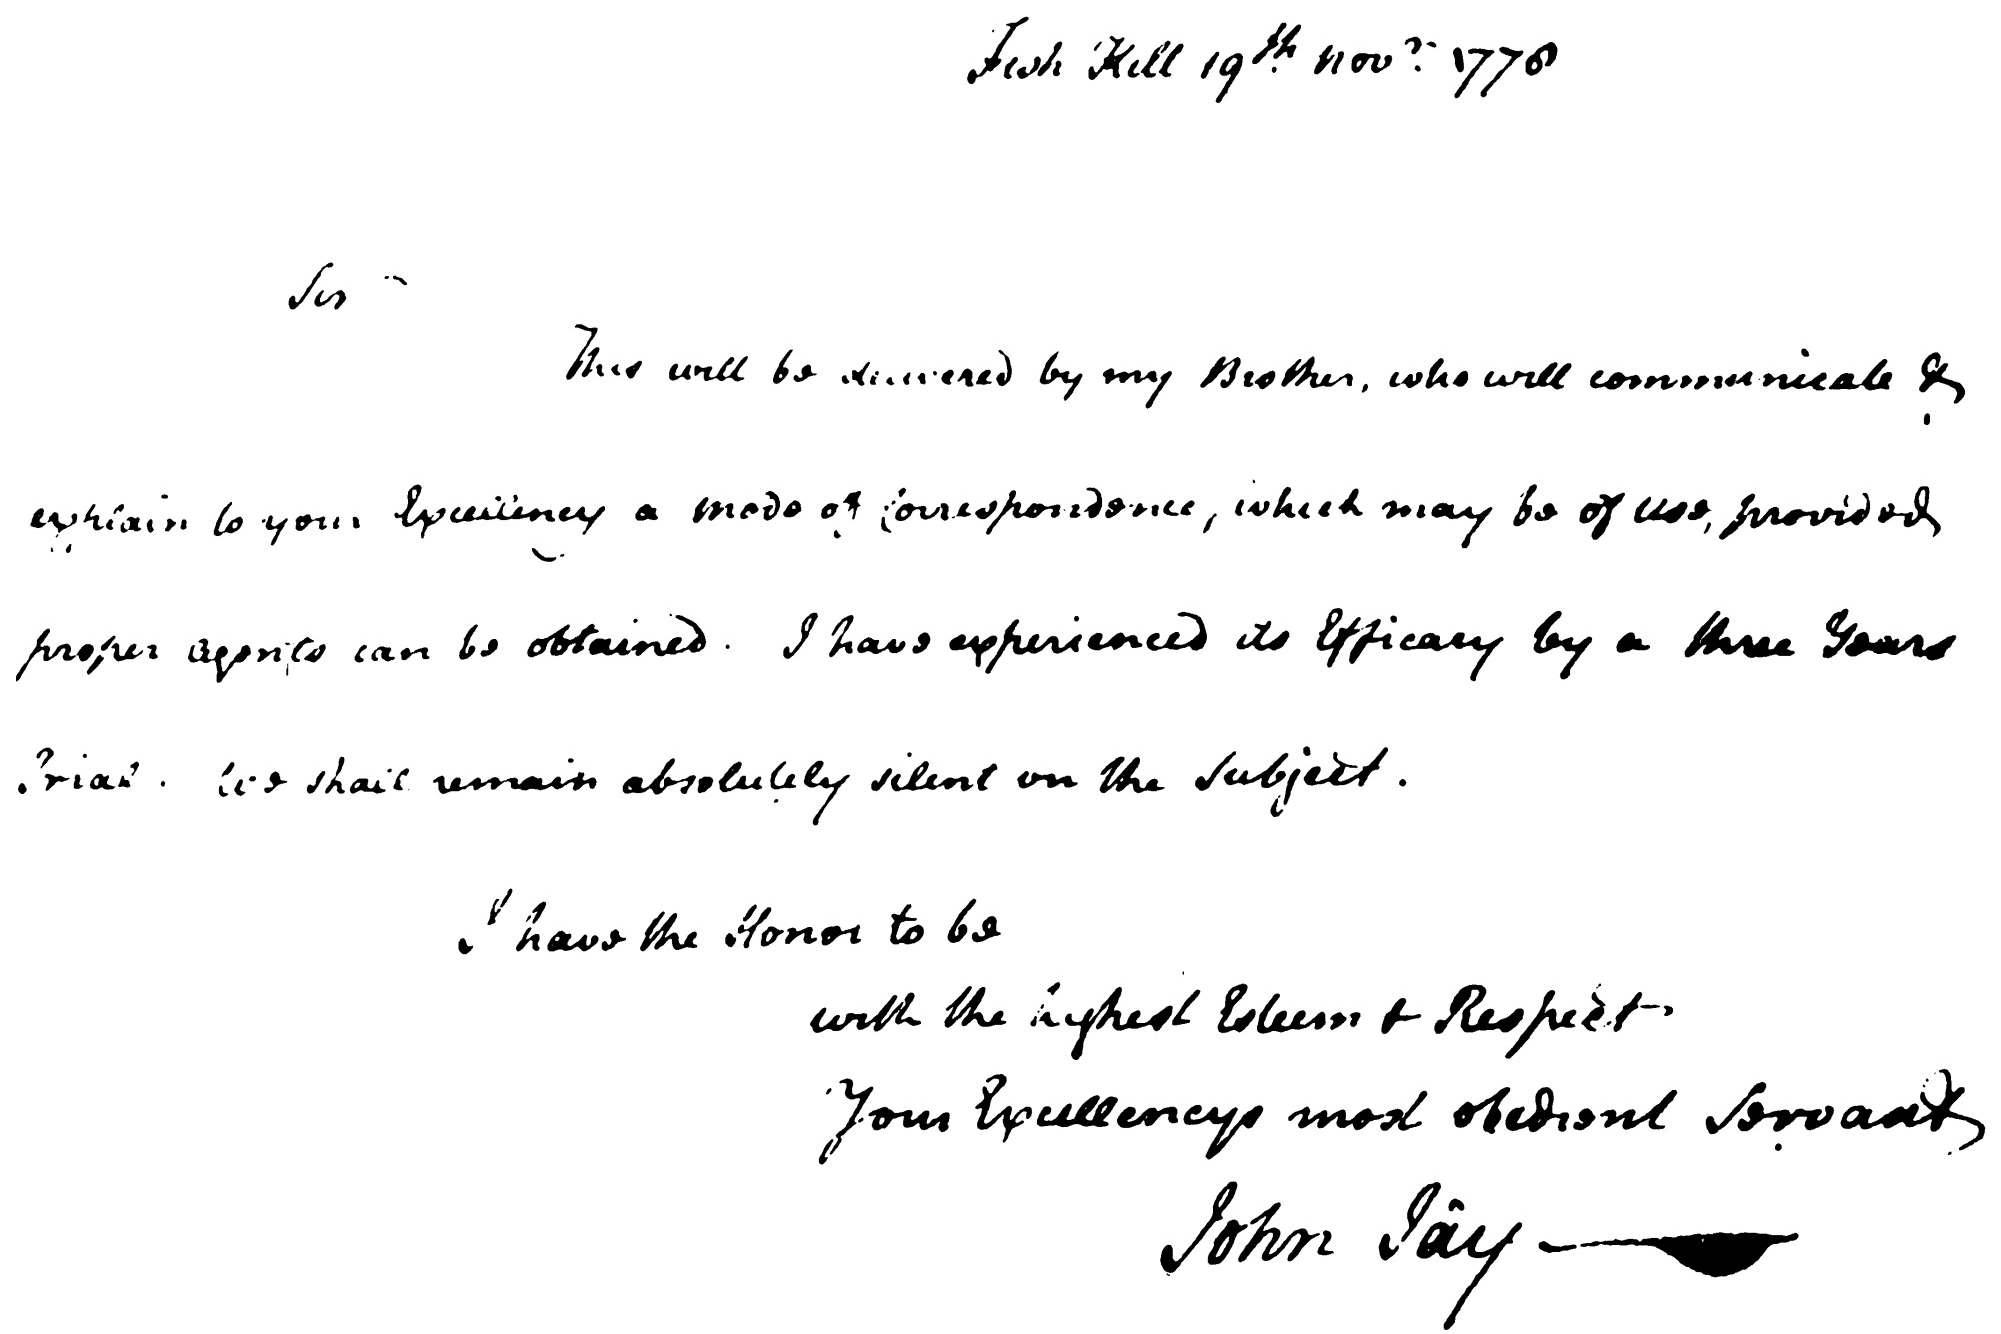 Fish Kill 19th Novr. 1778
Sir
This will be delivered by my Brother, who will communicate &
explain to your Excellency a mode of Correspondence, which may be of use, provided
proper agents can be obtained. I have experienced its Efficacy by a three Years
Trial. We shall remain absolutely silent on the Subject.
I have the Honor to be
with the highest Esteem & Respect
Your Excellencys most obedient Servant
John Jay